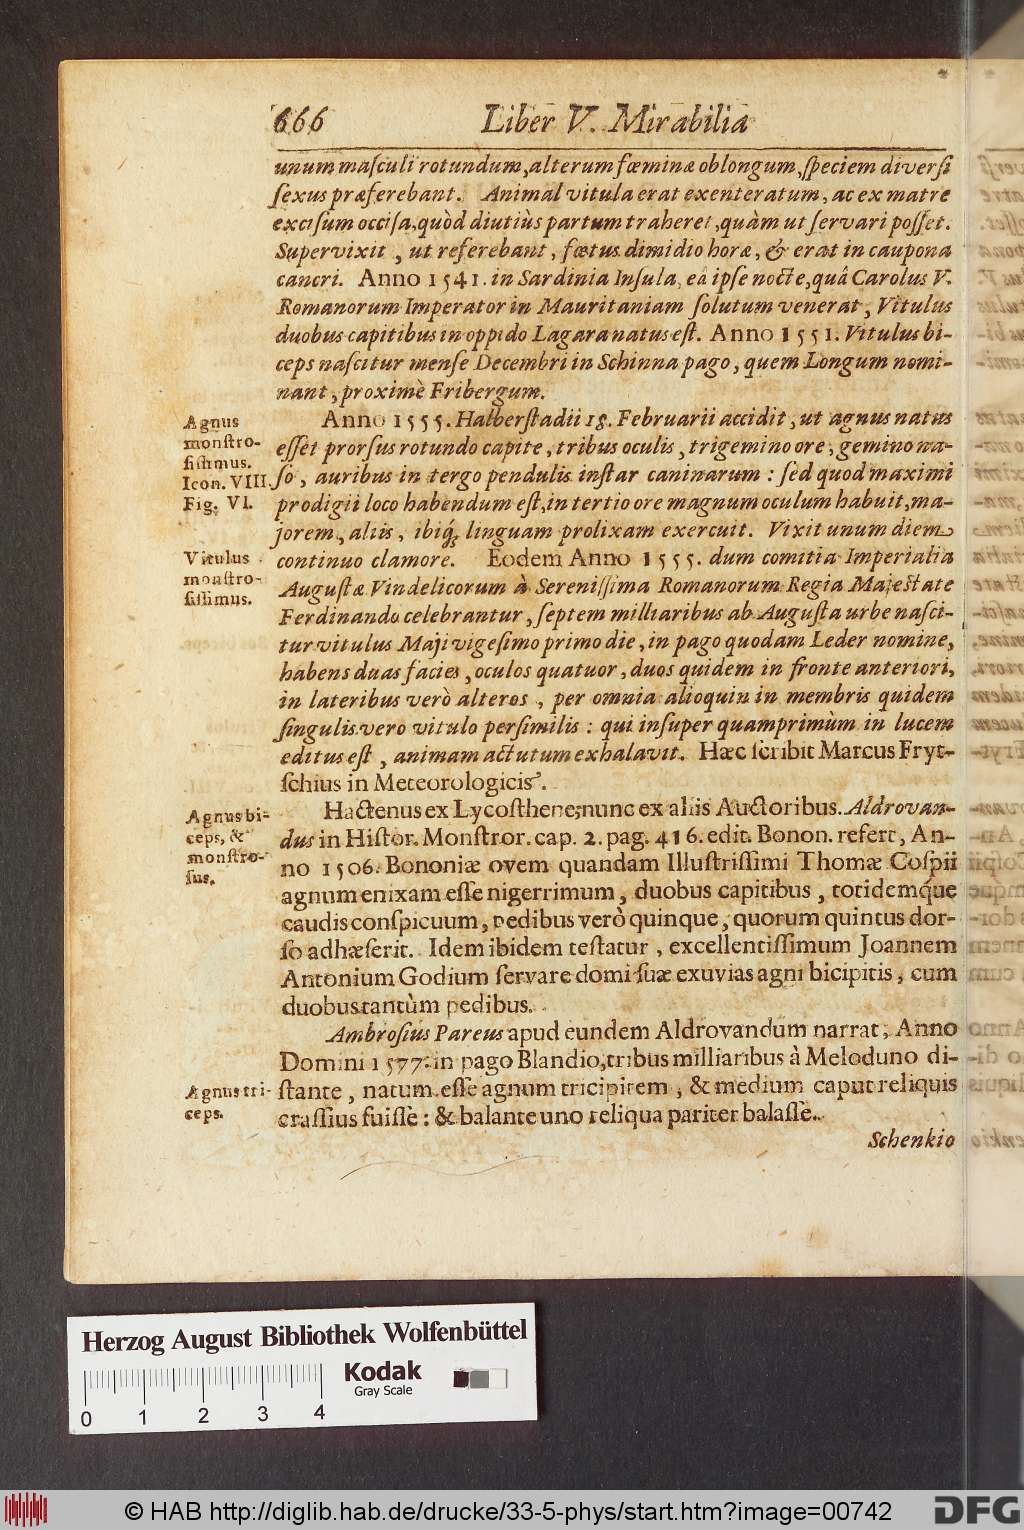 666 Liber V. Mirabilia
unum maſculi rotundum, alterum fœminæ oblongum, ſpeciem diverſi
ſexus præferebant. Animal vitula erat exenteratum, ac ex matre
exciſum occiſa, quòd diutiùs partum traheret, quàm ut ſervari poſſet.
Supervixit, ut referebant, fœtus dimidio horæ, & erat in caupona
cancri. Anno 1541. in Sardinia Inſula, eâ ipſe nocte, quâ Carolus V.
Romanorum Imperator in Mauritaniam ſolutum venerat, Vitulus
duobus capitibus in oppido Lagara natus eſt. Anno 1551. Vitulus bi-
ceps naſcitur menſe Decembri in Schinna pago, quem Longum nomi-
nant, proximè Fribergum.
Agnus
monſtro-
ſiſſimus.
Icon. VIII.
Fig. VI.
Anno 1555. Halberſtadii 18. Februarii accidit, ut agnus natus
eſſet prorſus rotundo capite, tribus oculis, trigemino ore, gemino na-
ſo, auribus in tergo pendulis inſtar caninarum: ſed quod maximi
prodigii loco habendum eſt, in tertio ore magnum oculum habuit, ma-
jorem, aliis, ibiq́; linguam prolixam exercuit. Vixit unum diem
Vitulus
monſtro-
ſiſſimus.
continuo clamore. Eodem Anno 1555. dum comitia Imperialia
Auguſtæ Vindelicorum à Sereniſſima Romanorum Regia Majeſtate
Ferdinando celebrantur, ſeptem milliaribus ab Auguſta urbe naſci-
tur vitulus Maji vigeſimo primo die, in pago quodam Leder nomine,
habens duas facies, oculos quatuor, duos quidem in fronte anteriori,
in lateribus verò alteros, per omnia alioquin in membris quidem
ſingulis vero vitulo perſimilis: qui inſuper quamprimùm in lucem
editus eſt, animam actutum exhalavit. Hæc ſcribit Marcus Fryt-
ſchius in Meteorologicis.
Agnus bi-
ceps, &
monſtro-
ſus.
Hactenus ex Lycoſthene; nunc ex aliis Auctoribus. Aldrovan-
dus in Hiſtor. Monſtror. cap. 2. pag. 416. edit. Bonon. refert, An-
no 1506. Bononiæ ovem quandam Illuſtriſſimi Thomæ Coſpii
agnum enixam eſſe nigerrimum, duobus capitibus, totidemq́ue
caudis conſpicuum, pedibus verò quinque, quorum quintus dor-
ſo adhæſerit. Idem ibidem teſtatur, excellentiſſimum Joannem
Antonium Godium ſervare domi ſuæ exuvias agni bicipitis, cum
duobus tantùm pedibus.
Ambroſius Pareus apud eundem Aldrovandum narrat, Anno
Domini 1577. in pago Blandio, tribus milliaribus à Meloduno di-
Agnus tri-
ceps.
ſtante, natum eſſe agnum tricipitem, & medium caput reliquis
craſſius fuiſſe: & balante uno reliqua pariter balaſſe.
Schenkio
Herzog August Bibliothek Wolfenbüttel
Kodak
Gray Scale
0 1 2 3 4
© HAB http://diglib.hab.de/drucke/33-5-phys/start.htm?image=00742
DFG